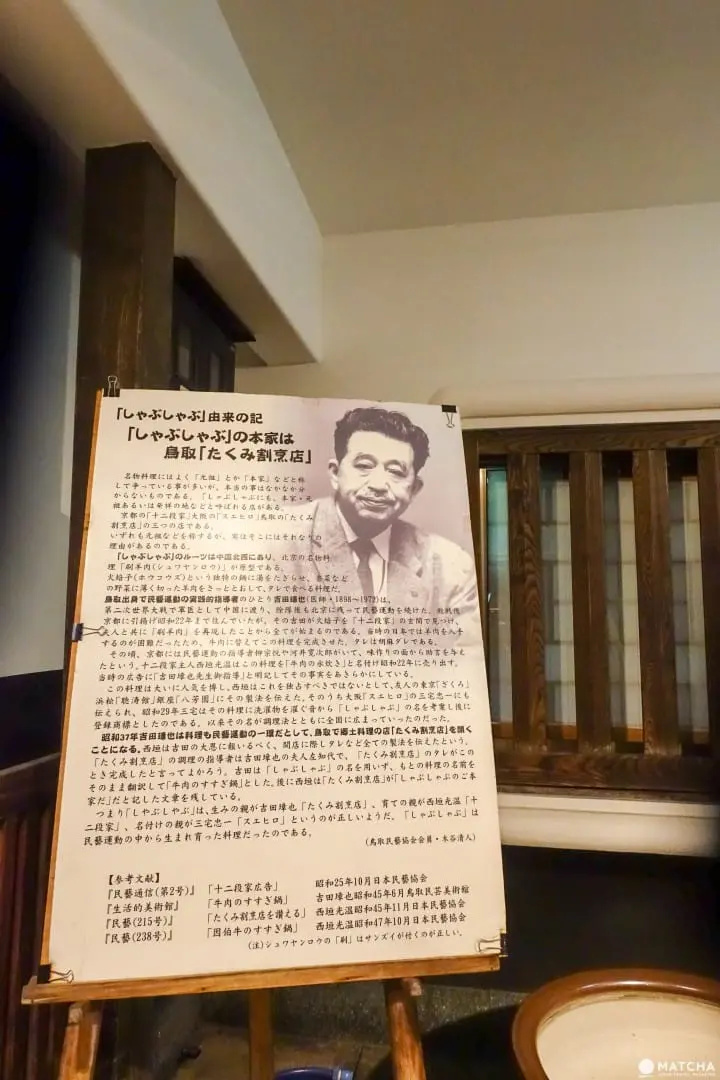 「しゃぶしゃぶ」由来の記
「しゃぶしゃぶ」の本家は
鳥取「たくみ割烹店」
名物料理にはよく「元祖」とか「本家」などと称
して争っている事が多いが、本当の事はなかなか分
からないものである。「しゃぶしゃぶにも、本家・元
祖あるいは発祥の地などと呼ばれる店がある。
京都の「十二段家」大阪の「スエヒロ」鳥取の「たくみ
割烹店」の三つの店である。
いずれも元祖などを称するが、実はそこにはそれなりの
理由があるのである。
「しゃぶしゃぶ」のルーツは中国北西にあり、北京の名物料
理「剃羊肉(シュワヤンロウ)」が原型である。
火鍋子(ホウコウズ)という独特の鍋に湯をたぎらせ、春菜など
の野菜に薄く切った羊肉をさっととおして、タレで食べる料理だ。
鳥取出身で民藝運動の実践的指導者のひとり吉田璋也(医師・1898〜1972)は、
第二次世界大戦で軍医として中国に渡り、除隊後も北京に残って民藝運動を続けた。敗戦後
京都に引揚げ昭和22年まで住んでいたが、その吉田が火鍋子を「十二段家」の玄関で見つけ、
友人と共に「剃羊肉」を再現したことから全てが始まるのである。当時の日本では羊肉を入手
するのが困難だったため、牛肉に替えてこの料理を完成させた。タレは胡麻ダレである。
その頃、京都には民藝運動の指導者柳宗悦や河井寛次郎がいて、味作りの面から助言を与え
たという。十二段家主人西垣光温はこの料理を「牛肉の水炊き」と名付け昭和22年に売り出す。
当時の広告に「吉田璋也先生御指導」と明記してその事実をあきらかにしている。
この料理は大いに人気を博し、西垣はこれを独占すべきではないとして、友人の東京「ざくろ」
浜松「聴涛館」銀座「八芳園」にその製法を伝えた。そのうち大阪「スエヒロ」の三宅忠一にも
伝えられ、昭和29年三宅はその料理に洗濯物を濯ぐ音から「しゃぶしゃぶ」の名を考案し後に
登録商標としたのである。以来その名が調理法とともに全国に広まっていったのだった。
昭和37年吉田璋也は料理も民藝運動の一環だとして、鳥取で郷土料理の店「たくみ割烹店」を開く
ことになる。西垣は吉田の大恩に報いるべく、開店に際しタレなど全ての製法を伝えたという。
「たくみ割烹店」の調理の指導者は吉田璋也の夫人友知代で、「たくみ割烹店」のタレがこの
とき完成したと言ってよかろう。吉田は「しゃぶしゃぶ」の名を用いず、もとの料理の名前を
そのまま翻訳して「牛肉のすすぎ鍋」とした。後に西垣は「たくみ割烹店」が「しゃぶしゃぶのご本
家だ」だと記した文章を残している。
つまり「しゃぶしゃぶ」は、生みの親が吉田璋也「たくみ割烹店」、育ての親が西垣光温「十
二段家」、名付けの親が三宅忠一「スエヒロ」というのが正しいようだ。「しゃぶしゃぶ」は
民藝運動の中から生まれ育った料理だったのである。
(鳥取民藝協会会員・木谷清人)
【参考文献】
『民藝通信(第2号)』 「十二段家広告」 昭和25年10月日本民藝協会
『生活的美術館』 「牛肉のすすぎ鍋」 吉田璋也昭和45年6月鳥取民芸美術館
『民藝(215号)』 「たくみ割烹店を讃える」 西垣光温昭和45年11月日本民藝協会
『民藝(238号)』 「因伯牛のすすぎ鍋」 西垣光温昭和47年10月日本民藝協会
(注)シュワヤンロウの「剃」はサンズイが付くのが正しい。
MATCHA